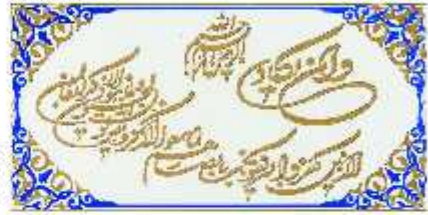 بسم الله الرحمن الرحیم
وان یکاد
الذین کفروا لیزلقونک بابصارهم
لما سمعوا الذکر و یقولون
انه لمجنون و ما هو الا ذکر للعالمین